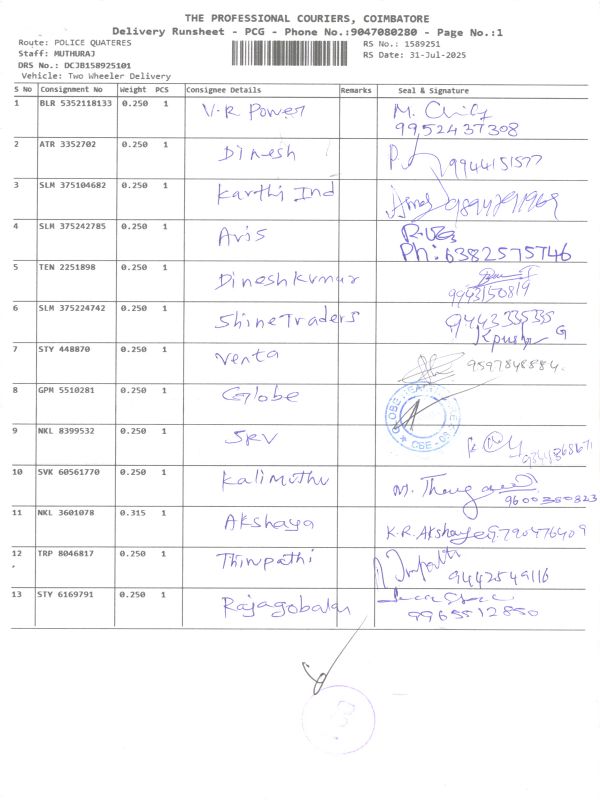 THE PROFESSIONAL COURIERS, COIMBATORE
Delivery Runsheet - PCG - Phone No.:9047080280 - Page No.:1
Route: POLICE QUATERES RS No.: 1589251
Staff: MUTHURAJ RS Date: 31-Jul-2025
DRS No.: DCJB158925101
Vehicle: Two Wheeler Delivery
S No Consignment No Weight PCS Consignee Details Remarks Seal & Signature
1 BLR 5352118133 0.250 1 V.R Power M.
9952437308
2 ATR 3352702 0.250 1 Dinesh P. 9944151577
3 SLM 375104682 0.250 1 Karthi Ind
4 SLM 375242785 0.250 1 Avis
Ph: 6382575746
5 TEN 2251898 0.250 1 Dineshkumar
9943150819
6 SLM 375224742 0.250 1 Shine Traders 9443335335
G
7 STY 448870 0.250 1 Venta 9597848884.
8 GPM 5510281 0.250 1 Globe GLOBE
CBE
9 NKL 8399532 0.250 1 SKV
10 SVK 60561770 0.250 1 Kalimuthu M.
9600350823
11 NKL 3601078 0.315 1 Akshaya K.R. Akshaya 9790476409
12 TRP 8046817 0.250 1 Thirupathi
9442549116
13 STY 6169791 0.250 1 Rajagobalan
9965512850